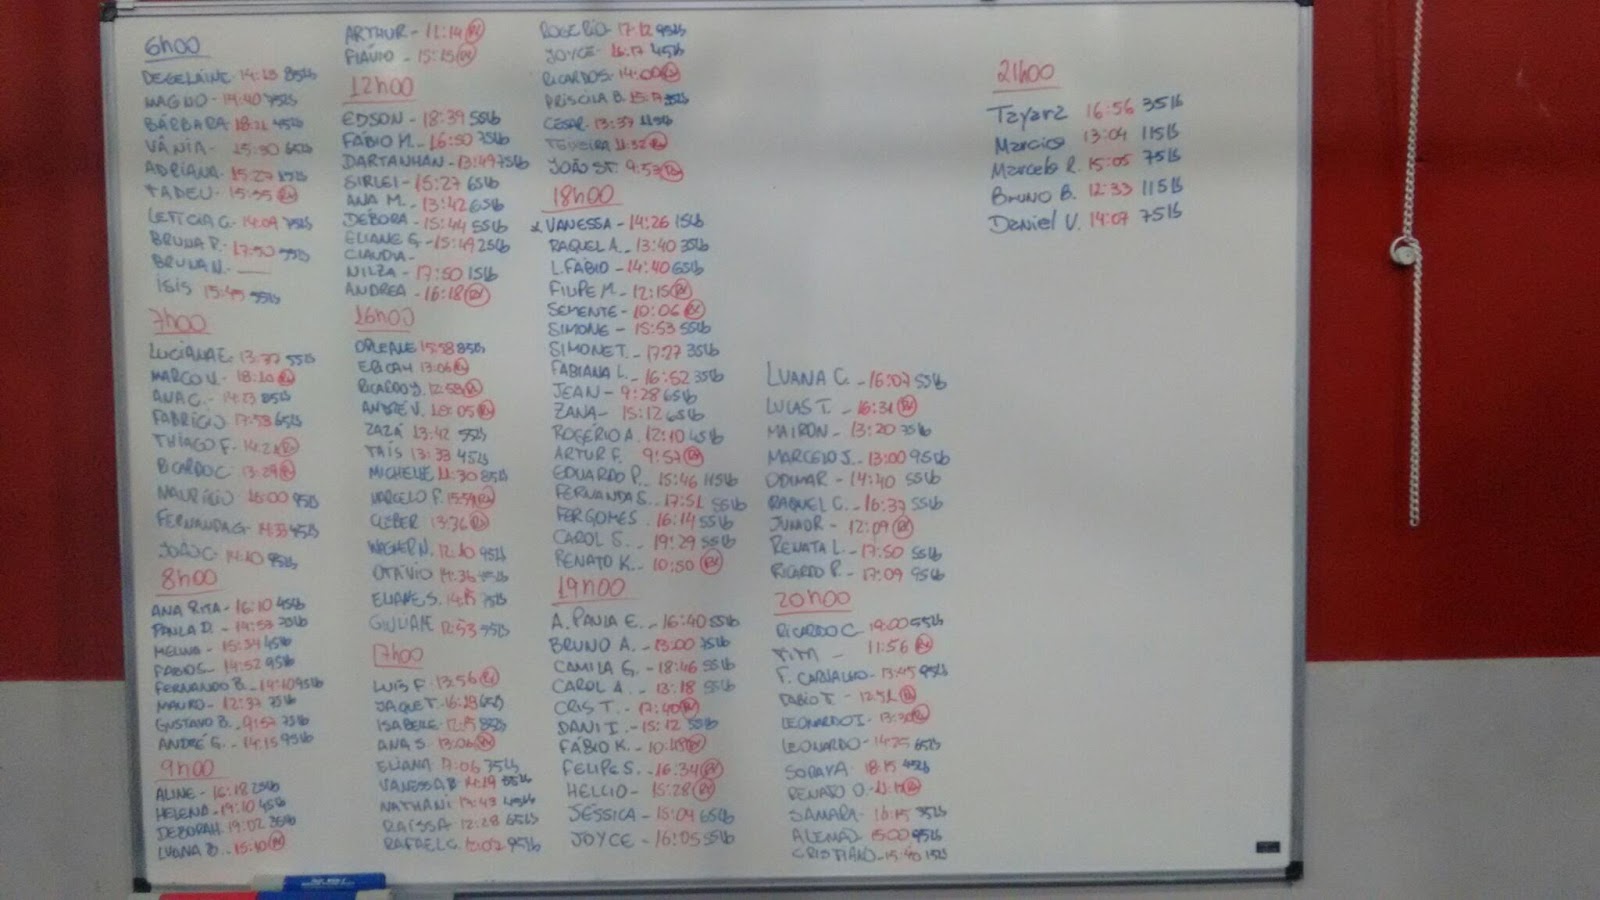 6h00
DEGELAINE - 14:13 85lb
MAGNO - 14:40 75lb
BÁRBARA 18:21 45lb
VÂNIA - 15:30 65lb
ADRIANA - 15:27
TADEU - 15:55 Rx
LETÍCIA C. 14:09 75lb
BRUNA P. - 17:50 55lb
BRUNA N. -
ISIS 15:45 55lb
7h00
LUCIANA E. 13:37 55lb
MARCO V. - 18:10 Rx
ANA C. - 14:13 85lb
FABRÍCIO - 17:58 65lb
THIAGO F. 14:21 Rx
RICARDO C. 13:29 Rx
MAURÍCIO 16:00 95lb
FERNANDA G. 14:33 45lb
JOÃO C. 14:10 95lb
8h00
ANA RITA - 16:10 45lb
PAULA D. - 14:53
MELINA - 15:34 45lb
FABIO S. - 14:52 95lb
FERNANDO B. - 14:10 95lb
MAURO - 12:37 75lb
GUSTAVO B. - 9:57 75lb
ANDRÉ G. - 14:15 95lb
9h00
ALINE - 16:18 25lb
HELENA - 19:10 45lb
DEBORAH 19:02 35lb
LUANA B. - 15:10 Rx
ARTHUR - 11:14 Rx
FLÁVIO - 15:15 Rx
12h00
EDSON - 18:39 55lb
FÁBIO M. - 16:50 75lb
DARTANHAN - 13:49 75lb
SIRLEI - 15:27 65lb
ANA M. - 13:42 65lb
DEBORA - 15:44 55lb
ELIANE G. - 15:49 25lb
CLAUDIA -
NILZA - 17:50 15lb
ANDREA - 16:18 Rx
16h00
ORLEANE 15:58 85lb
ERICA H 13:06 Rx
RICARDO J. 12:58 Rx
ANDRÉ V. 10:05 Rx
ZAZÁ 13:42 55lb
TAÍS 13:33 45lb
MICHELLE 11:30 85lb
MARCELO F. 15:59 Rx
CLEBER 13:36 Rx
WAGNER N. 12:10 95lb
OTÁVIO 14:36
ELIANE S. 14:15 75lb
GIULIANE 12:53 55lb
17h00
LUÍS F. 13:56 Rx
JAQUE T. 16:28 65lb
ISABELE 12:15 85lb
ANA S. 13:06 Rx
ELIANA 17:06 35lb
VANESSA B 14:19 55lb
NATHANI 17:43
RAÍSSA - 12:28 65lb
RAFAEL C. 12:02 95lb
ROGERIO - 17:12 95lb
JOYCE - 16:17 45lb
RICARDO S. 14:00 Rx
PRISCILA B. 15:17 35lb
CÉSAR - 13:37 115lb
TEIXEIRA 11:32 Rx
JOÃO ST. 9:57 Rx
18h00
VANESSA - 14:26 15lb
RAQUEL A. - 13:40 35lb
L. FÁBIO - 14:40 65lb
FILIPE M. - 12:15 Rx
SEMENTE - 10:06 Rx
SIMONE - 15:53 55lb
SIMONE T. - 17:27 35lb
FABIANA L. - 16:52 35lb
JEAN - 9:28 65lb
ZANA - 15:12 65lb
ROGÉRIO A. 12:10 45lb
ARTUR F. 9:57 Rx
EDUARDO P. - 15:46 115lb
FERNANDA S. - 17:51 55lb
FER GOMES. 16:14 55lb
CAROL S. - 19:29 55lb
RENATO K. - 10:50 Rx
19h00
A. PAULA E. - 16:40 55lb
BRUNO A. - 13:00 75lb
CAMILA G. - 18:46 55lb
CAROL A. - 13:18 55lb
CRIS T. - 17:40 Rx
DANI I. - 15:12 55lb
FÁBIO K. - 10:18 Rx
FELIPE S. - 16:34 Rx
HELCIO - 15:28 Rx
JÉSSICA - 15:04 65lb
JOYCE - 16:05 55lb
LUANA C. - 16:07 55lb
LUCAS T. - 16:31 Rx
MAIRON - 13:20 75lb
MARCELO J. - 13:00 95lb
ODIMAR - 14:40 55lb
RAQUEL C. - 16:37 55lb
JUNIOR - 12:09 Rx
RENATA L. - 17:50 55lb
RICARDO P. - 17:09 95lb
20h00
RICARDO C 19:00 55lb
TIM - 11:56 Rx
F. CARVALHO - 13:45 95lb
FABIO T. - 12:51 Rx
LEONARDO I - 13:30 Rx
LEONARDO - 14:25 65lb
SORAYA 18:15 45lb
RENATO O. - 11:19 Rx
SAMARA - 16:15 35lb
15:00 95lb
CRISTIANO - 15:40 15lb
21h00
Tayara 16:56 35lb
Marcios 13:04 115lb
Marcelo R. 15:05 75lb
Bruno B. 12:33 115lb
Daniel V. 14:07 75lb